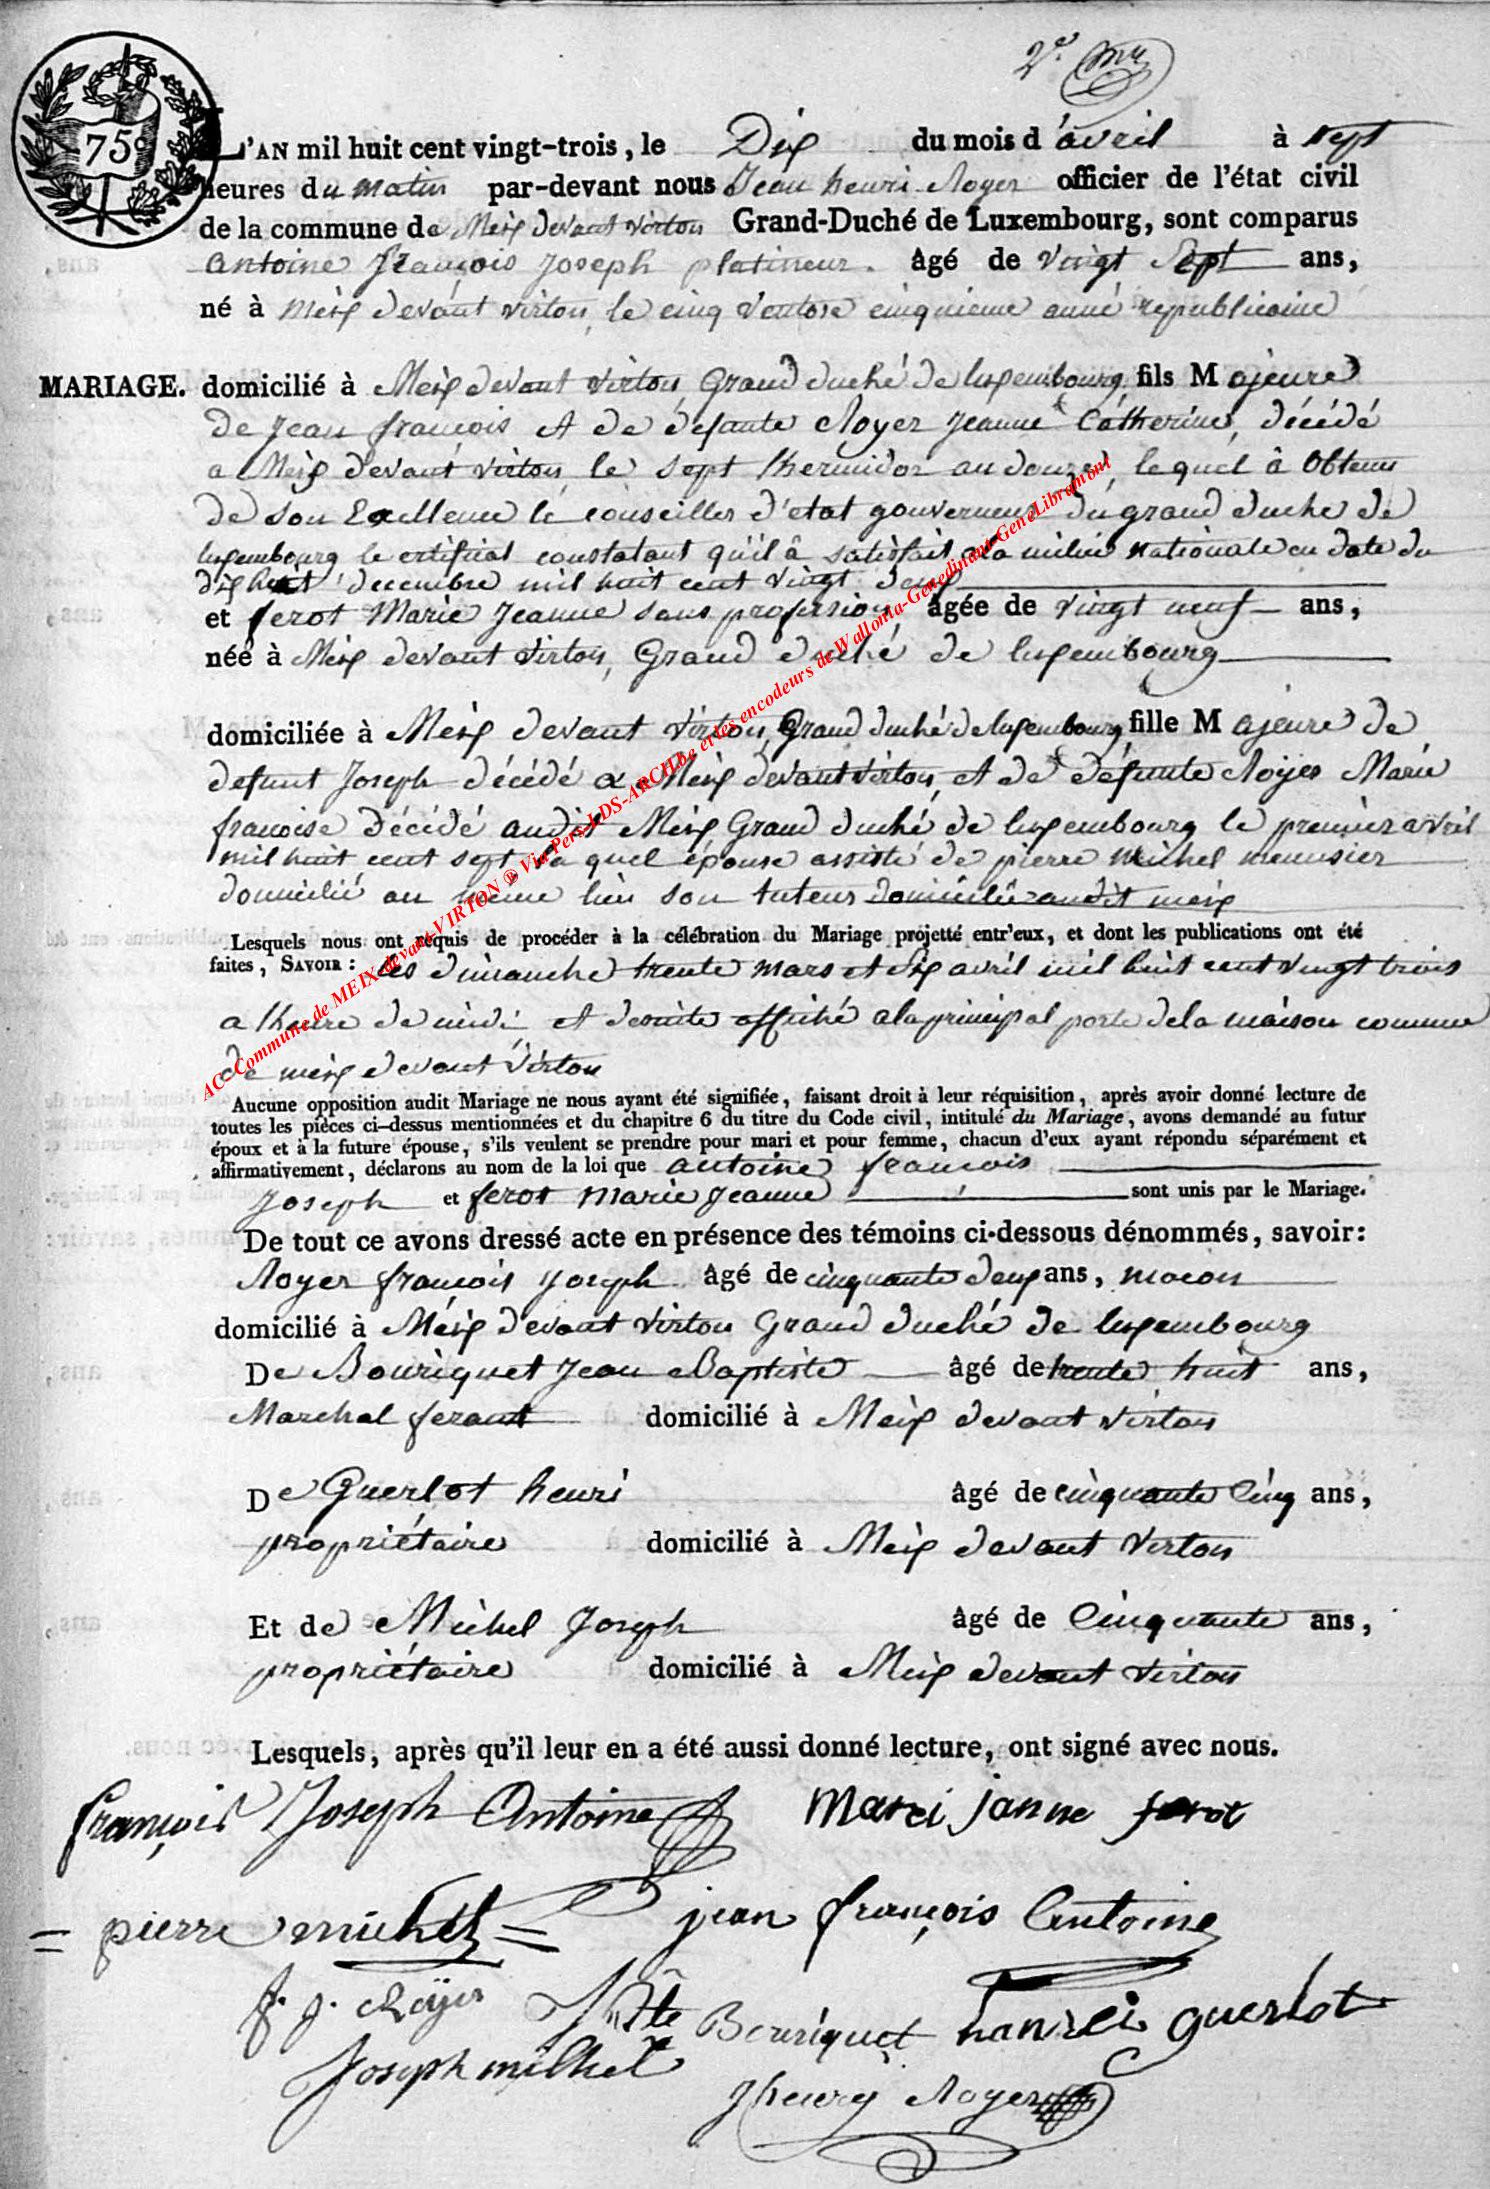 2e. Mr
75c
L'AN mil huit cent vingt-trois, le Dix du mois d'avril à sept
heures du matin par-devant nous Jean henri Royer officier de l'état civil
de la commune de Meix devant virton Grand-Duché de Luxembourg, sont comparus
antoine françois joseph platineur. âgé de vingt sept ans,
né à Meix devant virton, le cinq ventose cinquieme anné republicaine
MARIAGE. domicilié à Meix devant virton, Grand duché de luxembourg fils Majeure
de jean françois et de defunte Royer jeanne Catherine, décédé
a Meix devant virton le sept thermidor an douze, lequel à obtenu
de son Excellence le conseiller d'etat gouverneur du grand duche de
luxembourg le certificat constatant qu'il â satisfait a la milice nationale en date du
dix huit decembre mil huit cent vingt deux
et ferot Marie jeanne sans profession âgée de vingt neuf ans,
née à Meix devant virton, Grand duché de luxembourg
domiciliée à Meix devant virton, Grand duché de luxembourg fille Majeure de
defunt joseph décédé a Meix devant virton, et de défunte Royer Marie
francoise décédé audit Meix Grand duché de luxembourg le premier avril
mil huit cent sept, la quel épouse assisté de pierre michel menusier
domicilié au meme lieu son tuteur domicilié audit meix
Lesquels nous ont requis de procéder à la célébration du Mariage projetté entr'eux, et dont les publications ont été
faites, SAVOIR : les dimanche trente mars et six avril mil huit cent vingt trois
a lheure de midi et desuite affiché a la principal porte de la maison commune
de meix devant virton
Aucune opposition audit Mariage ne nous ayant été signifiée, faisant droit à leur réquisition, après avoir donné lecture de
toutes les pièces ci-dessus mentionnées et du chapitre 6 du titre du Code civil, intitulé du Mariage, avons demandé au futur
époux et à la future épouse, s'ils veulent se prendre pour mari et pour femme, chacun d'eux ayant répondu séparément et
affirmativement, déclarons au nom de la loi que antoine francois
joseph et ferot Marie jeanne sont unis par le Mariage.
De tout ce avons dressé acte en présence des témoins ci-dessous dénommés, savoir:
Royer françois joseph âgé de cinquante deux ans, macon
domicilié à Meix devant virton Grand duché de luxembourg
De Bouriquet jean Baptiste âgé de trente huit ans,
Marchal ferant domicilié à Meix devant virton
De Guerlot henri âgé de cinquante cinq ans,
propriétaire domicilié à Meix devant virton
Et de Michel Joseph âgé de Cinquante ans,
propriétaire domicilié à Meix devant virton
Lesquels, après qu'il leur en a été aussi donné lecture, ont signé avec nous.
françois Joseph Antoine Marei janne ferot
= pierre michel = jean françois Antoine
f. j. Royer J Bte Bouriquet hanrei guerlot
Joseph milhel
J henry Royer
AC-Commune de MEIX-devant-VIRTON ® Via Pers-LDS-ARCH.be et les encodeurs de Wallonia-Genedinant-GeneLibramont